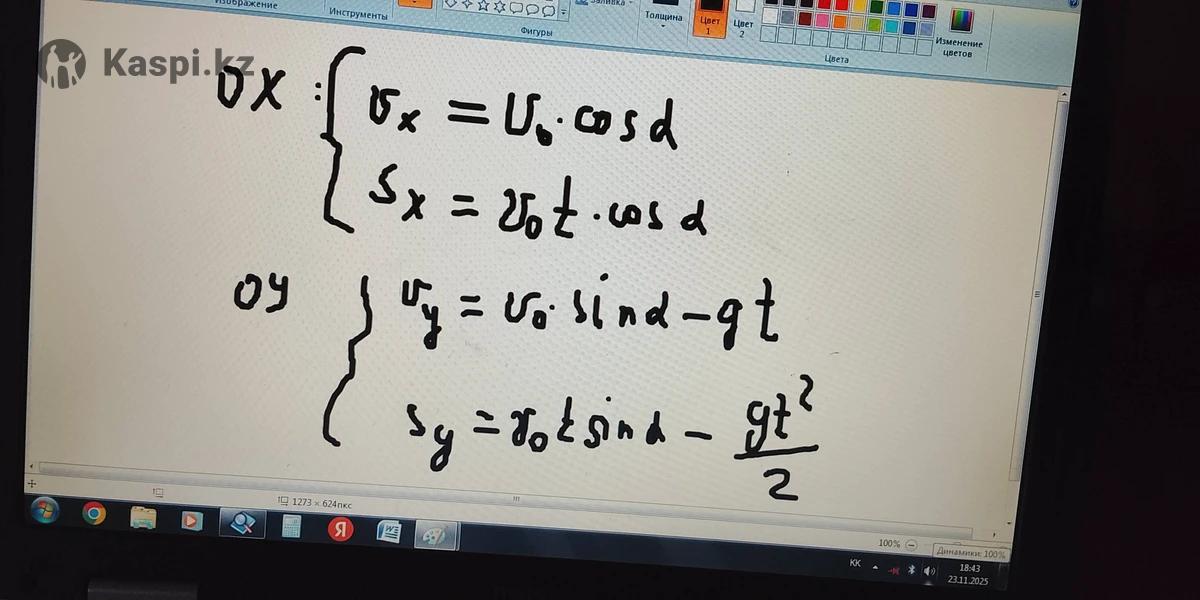 Изображение
Инструменты
Фигуры
Заливка
Толщина
Цвет 1
Цвет 2
Цвета
Изменение цветов
Kaspi.kz
OX : { υx = υ₀ · cos α
Sx = υ₀ t · cos α
OY { υy = υ₀ · sin α – gt
Sy = υ₀ t sin α – gt²/2
1273 × 624пкс
100%
Динамики: 100%
KK
18:43
23.11.2025